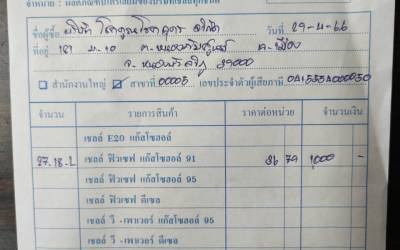 จำหน่าย : ผลิตภัณฑ์
ชื่อผู้ซื้อ บริษัท จำกัด วันที่ 29-4-66
ที่อยู่ 181 ม.10 ต. อ.เมือง
จ. 39000
สำนักงานใหญ่ สาขาที่ 00005 เลขประจำตัวผู้เสียภาษี
จำนวน รายการสินค้า ราคาต่อหน่วย จำนวนเงิน
เชลล์ E20 แก๊สโซฮอล์
27.18 เชลล์ ฟิวเซฟ แก๊สโซฮอล์ 91 36 79 1,000 -
เชลล์ ฟิวเซฟ แก๊สโซฮอล์ 95
เชลล์ ฟิวเซฟ ดีเซล
เชลล์ วี -เพาเวอร์ แก๊สโซฮอล์ 95
เชลล์ วี -เพาเวอร์ ดีเซล